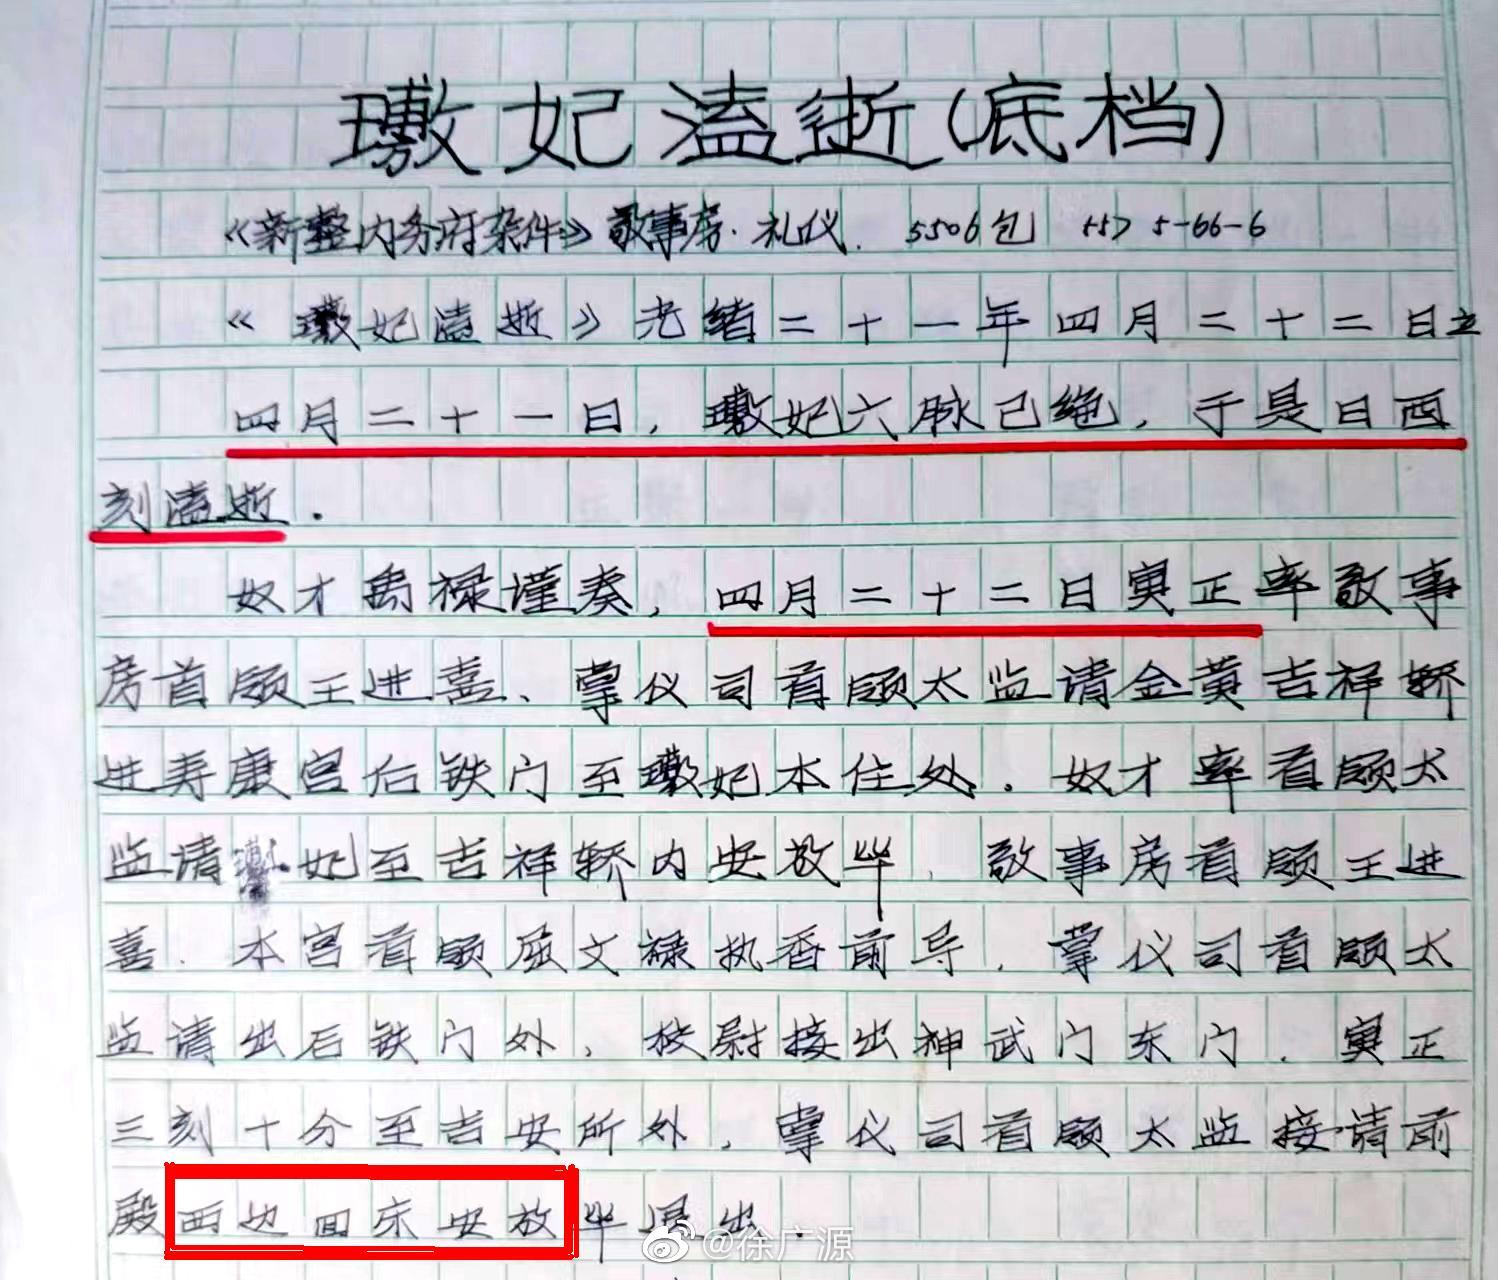 璷妃溘逝(底档)
《新整内务府杂件》敬事房·礼仪. 5506包 5-66-6
《璷妃溘逝》光绪二十一年四月二十二日立
四月二十一日，璷妃六脉已绝，于是日酉
刻溘逝.
奴才禹禄谨奏，四月二十二日寅正率敬事
房首领王进喜、掌仪司首领太监请金黄吉祥轿
进寿康宫后铁门至璷妃本住处. 奴才率首领太
监请璷妃至吉祥轿内安放毕. 敬事房首领王进
喜. 本宫首领 文禄执香前导，掌仪司首领太
监请出后铁门外，校尉接出神武门东门. 寅正
三刻十分至吉安所外，掌仪司首领太监接请前
殿西边回床安放毕退出.
@徐广源